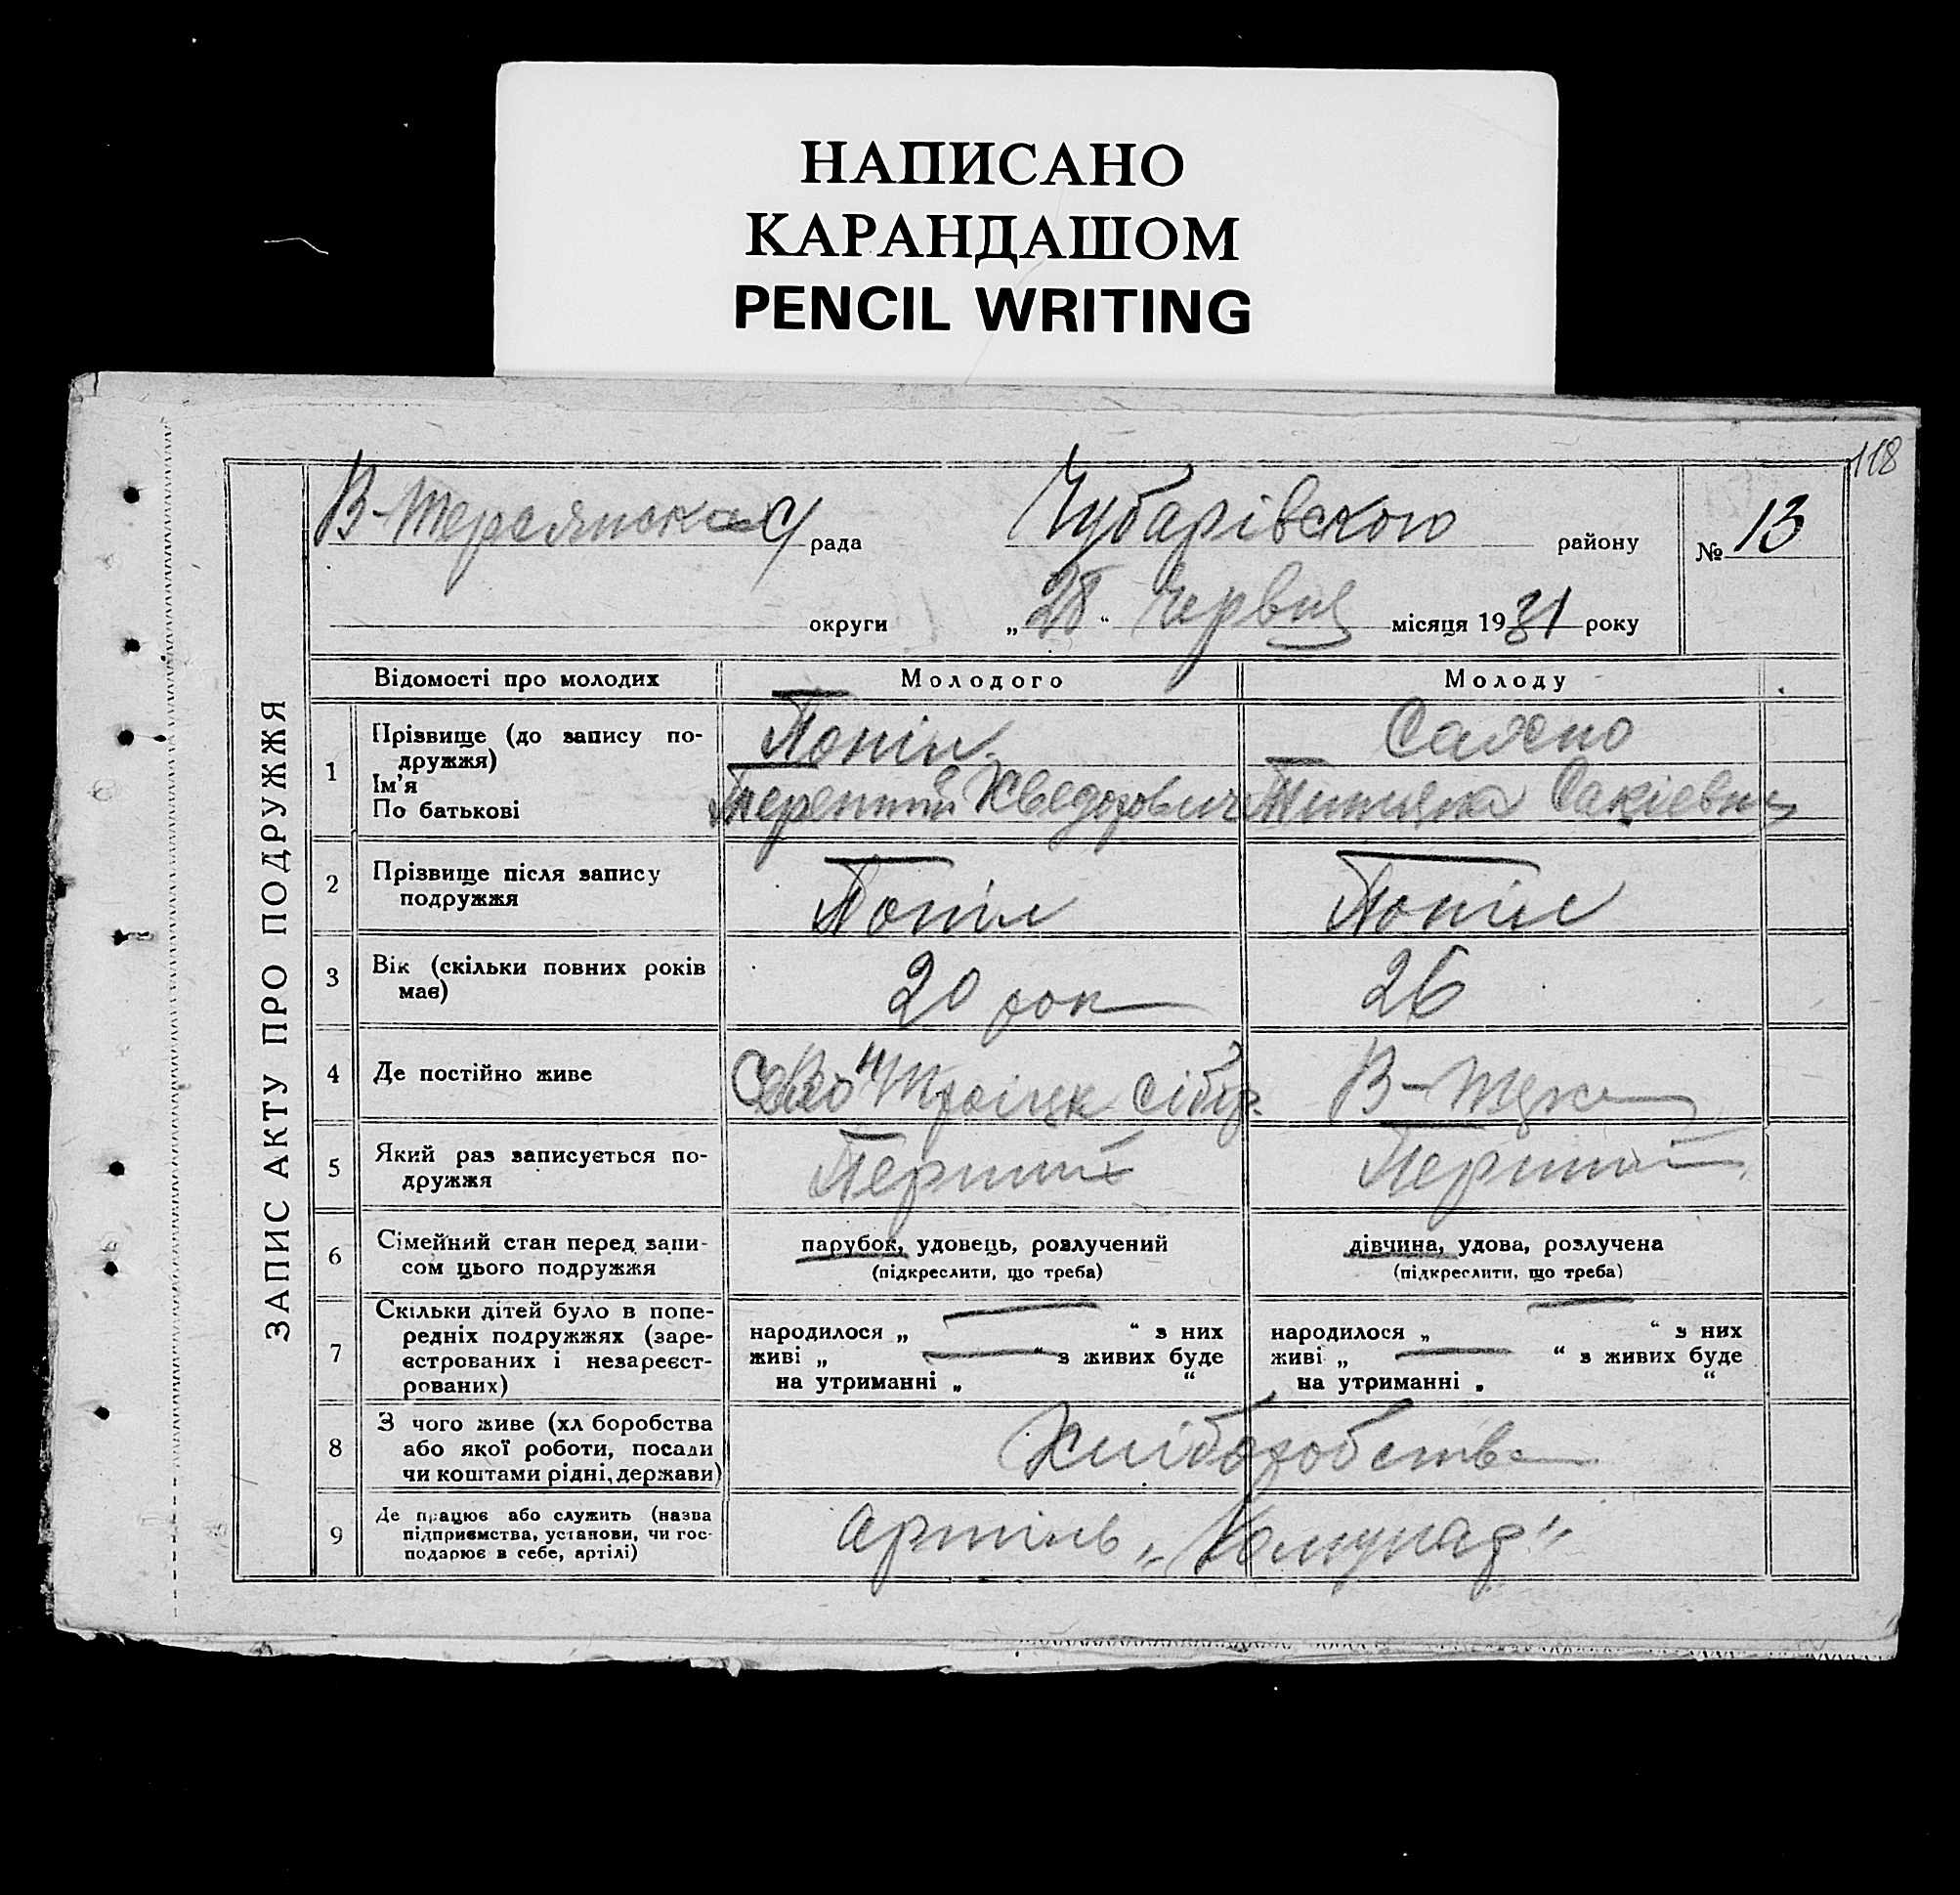 НАПИСАНО
КАРАНДАШОМ
PENCIL WRITING
118
ЗАПИС АКТУ ПРО ПОДРУЖЖЯ
В-Терсянська С/ рада Чубарівского району № 13
округи „28“ Червня місяця 1931 року
Відомості про молодих Молодого Молоду
1 Прізвище (до запису по-
дружжя)
Ім'я
По батькові
Попіл
Терентій Хведорович Сакієвна
2 Прізвище після запису
подружжя
Попіл Попіл
3 Вік (скільки повних років
має)
20 рок 26
4 Де постійно живе
Троіцк Сібір В-Терс
5 Який раз записується по-
дружжя
Перший Перший
6 Сімейний стан перед запи-
сом цього подружжя
парубок, удовець, розлучений
(підкреслити, що треба)
дівчина, удова, розлучена
(підкреслити, що треба)
7 Скільки дітей було в попе-
редніх подружжях (заре-
єстрованих і незареєст-
рованих)
народилося „ — “ з них
живі „ — “ з живих буде
на утриманні „ “
народилося „ — “ з них
живі „ — “ з живих буде
на утриманні „ “
8 З чого живе (хл боробства
або якої роботи, посади
чи коштами рідні, держави)
Хліборобства
9 Де працює або служить (назва
підприємства, установи, чи гос-
подарює в себе, артілі)
Артіль „Комунар“